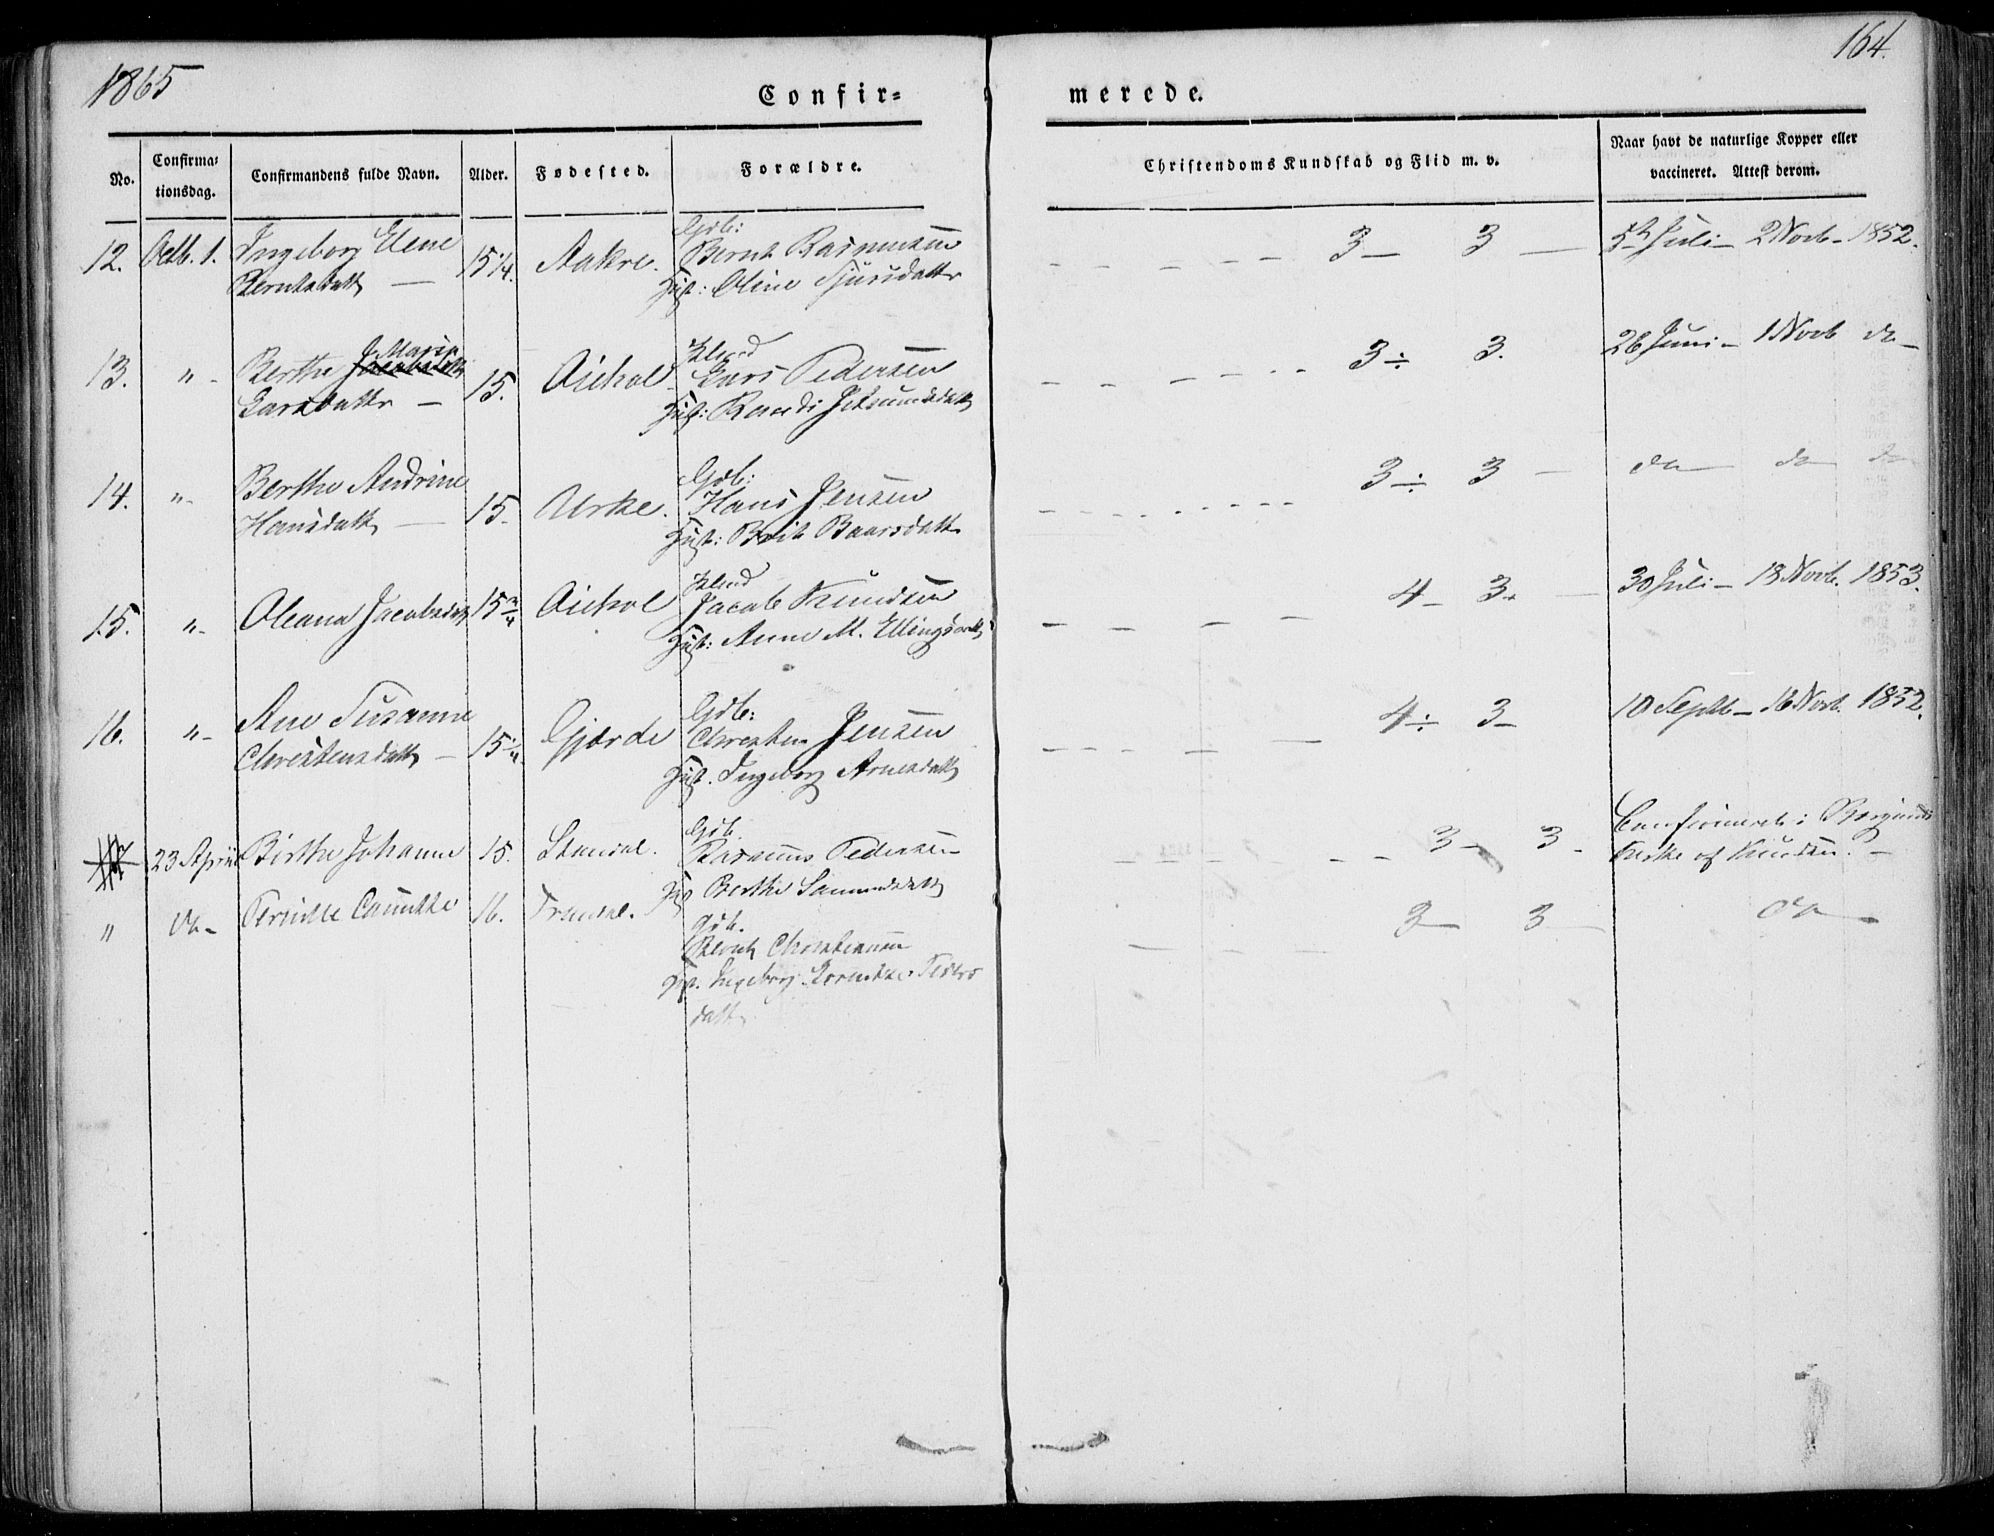 1865
164.
Confir=
merede.
No.
Confirma=
tionsdag.
Confirmandens fulde Navn.
Alder.
Fødested.
Forældre.
Christendoms Kundskab og Flid m. v.
Naar havt de naturlige Kopper eller
vaccineret. Attest derom.
12. Octb. 1. Ingeborg Elene
Berntsdatt — 15¼. Aakre.
Gdb:
Bernt Rasmussen
Hust: Oline Sjursdattr
3— 3 —
5te Juli — 2 Novb — 1852.
13. "- Berthe J. Marie
Larsdattr — 15. Aichol
Lars Pedersen
Hust: Randi
3÷ 3.
26 Juni — 1 Novb do —
14. "- Berthe Andrine
Hansdatt — 15. Urke.
Gdb:
Hans Jensen
Hust: Brit Baarsdatt
3÷ 3 —
do — do — do
15. "- Oleana Jacobsdatt 15¾ Aichol
Jacob Knudsen
Hust: Anne M. Ellingsdatt
4— 3. —
30 Juli — 18 Novb. 1853.
16. "- Ane Susanne
Christensdatt — 15¼. Gjørde
Gdb:
Christen Jensen
Hust. Ingeborg Arnesdatt
4÷ 3—
10 Septb — 16 Novb. 1852.
17 23 April Birthe Johanne 15. Standal.
Gdb.
Rasmus Pedersen
Hust Berthe
3— 3 -
Confirmeret i Borgunds
Kirke af Knudsen. —
" do - Pernille 16. Trandal.
Gdb.
Bernt Christensen
Hust. Ingeborg Peders
datt
3— 3 —
do —